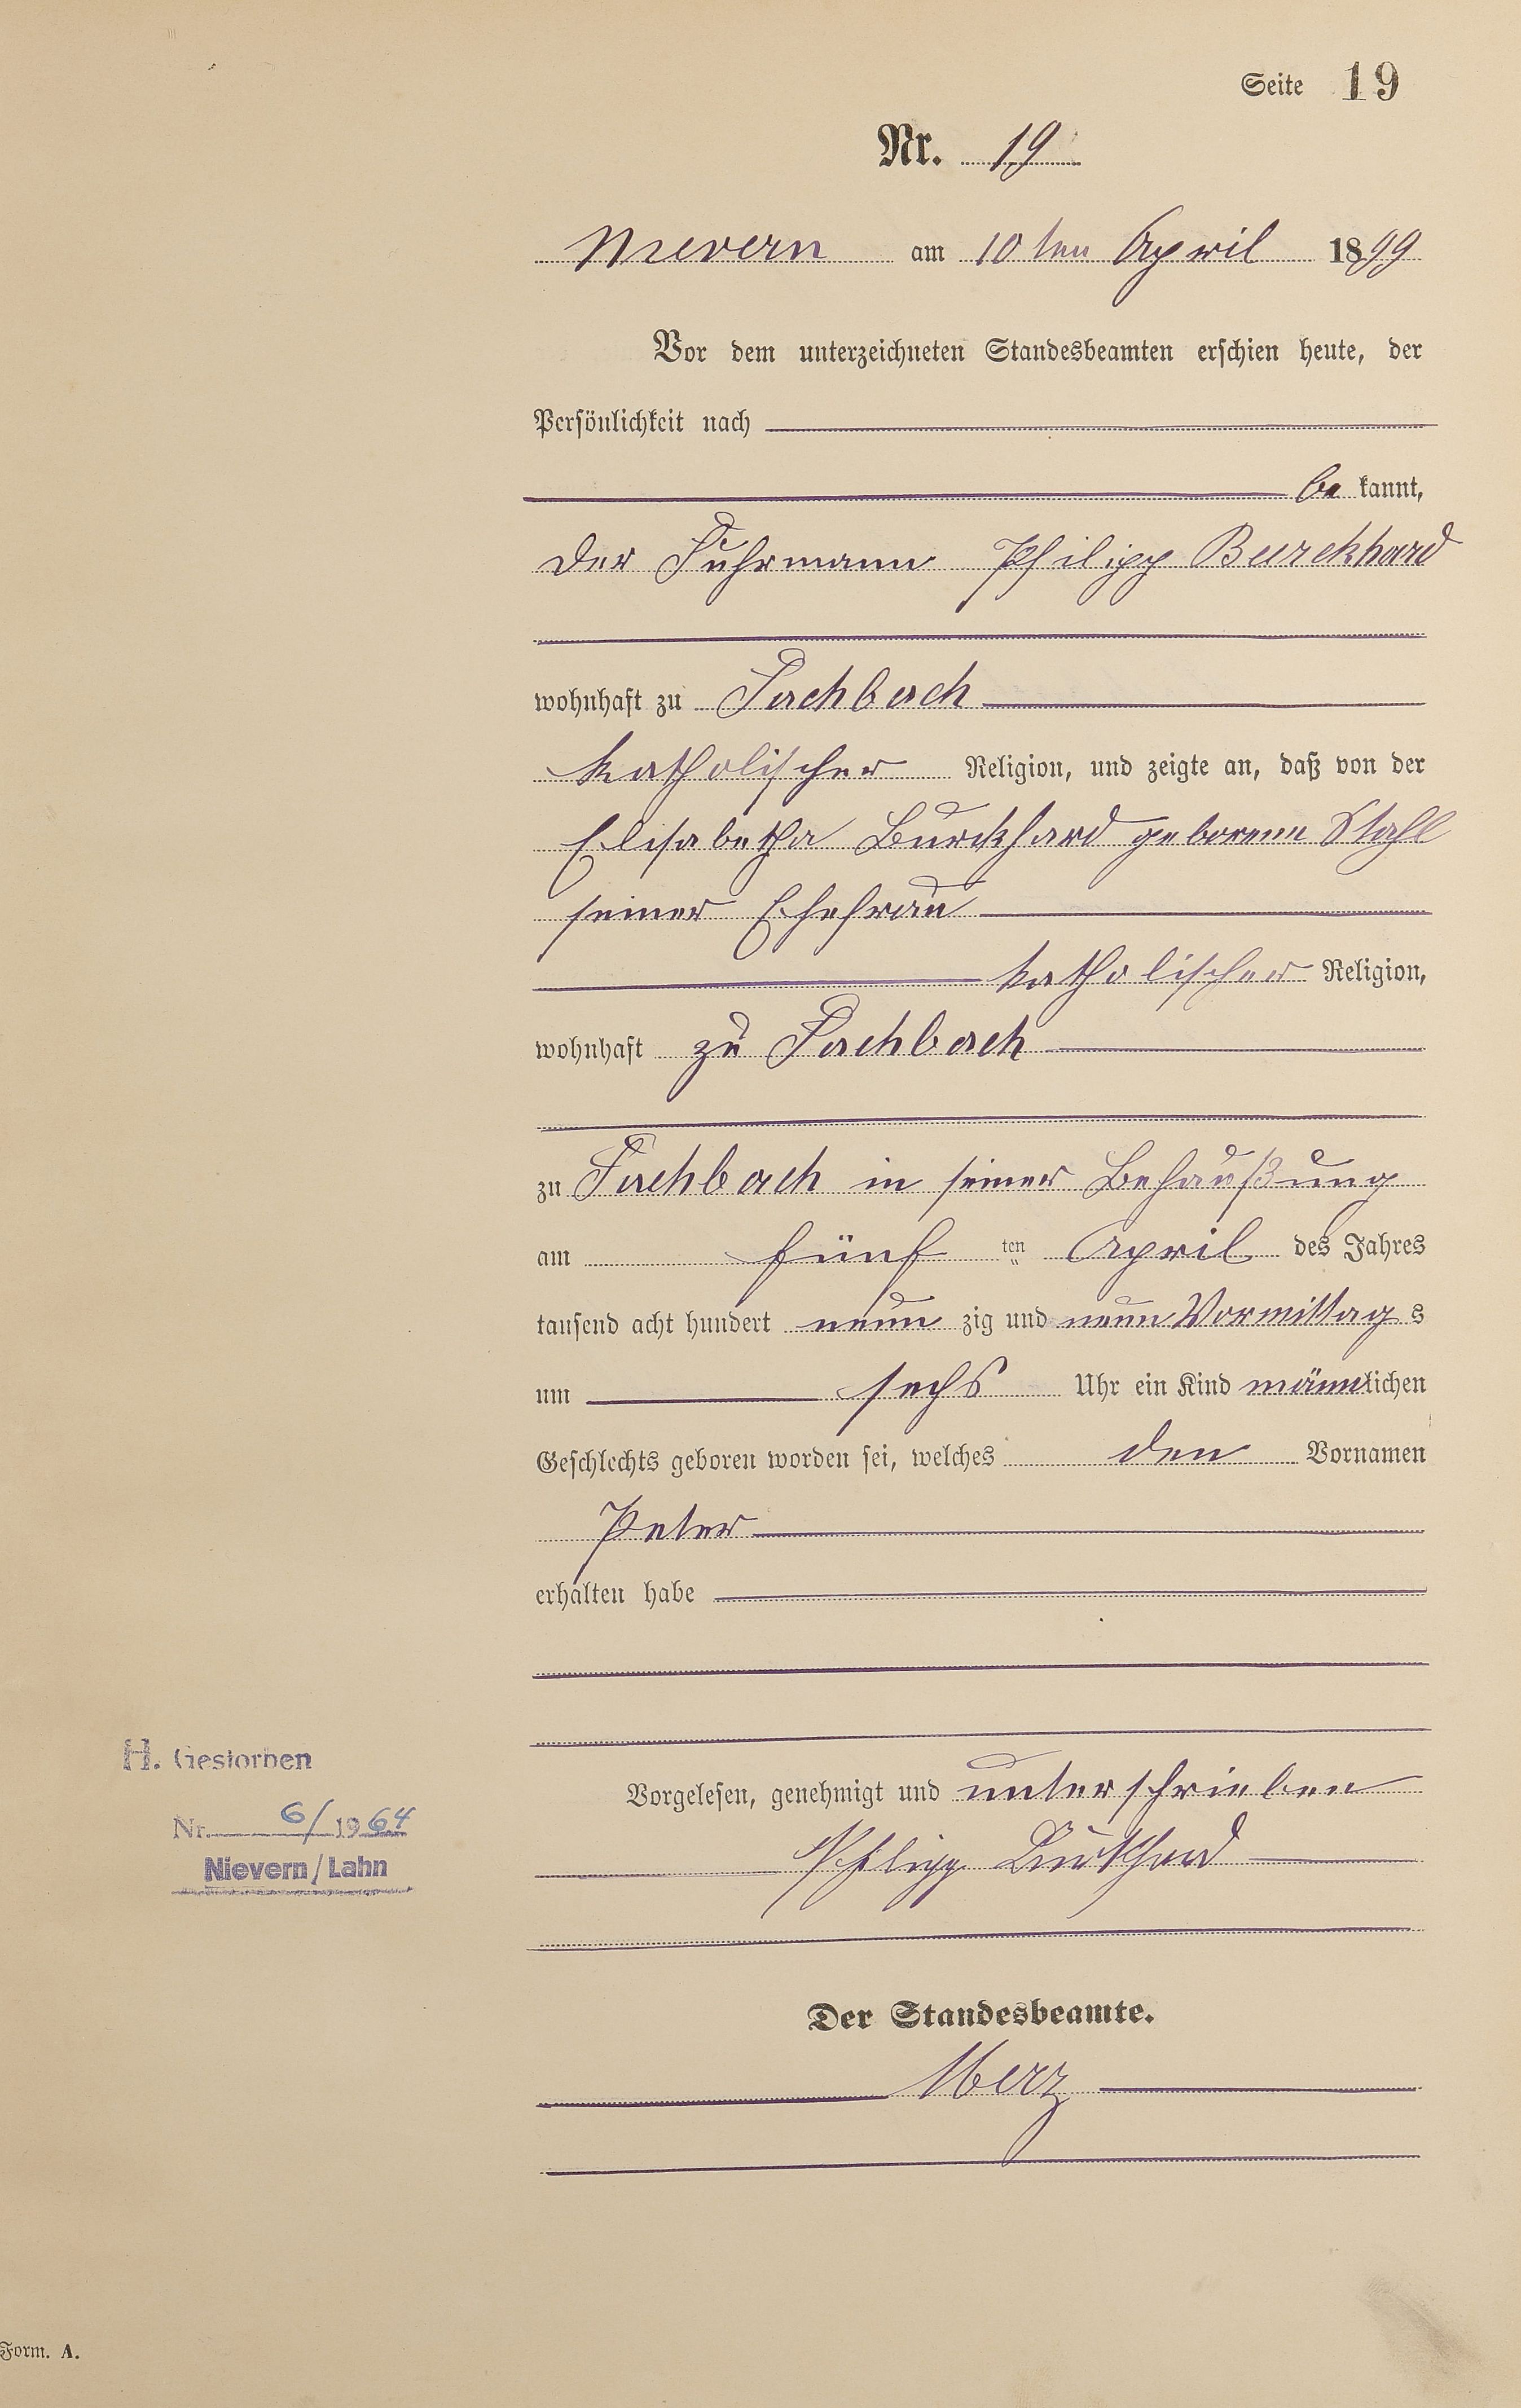 Seite 19
Nr. 19
Nievern am 10ten April 1899
Vor dem unterzeichneten Standesbeamten erschien heute, der
Persönlichkeit nach
be kannt,
der Fuhrmann Philipp Burckhard
wohnhaft zu Fachbach
katholischer Religion, und zeigte an, daß von der
Elisabetha Burckhard geborenn Stahl
seiner Ehefrau
katholischer Religion,
wohnhaft zu Fachbach
zu Fachbach in seiner Behaußung
am fünf ten April des Jahres
tausend acht hundert neun zig und neun Vormittag s
um sechs Uhr ein Kind männlichen
Geschlechts geboren worden sei, welches den Vornamen
Peter
erhalten habe
H. Gestorben
Nr. 6/1964
Nievern/Lahn
Vorgelesen, genehmigt und unterschrieben
Philipp Burkhard
Der Standesbeamte.
Merz
Form. A.